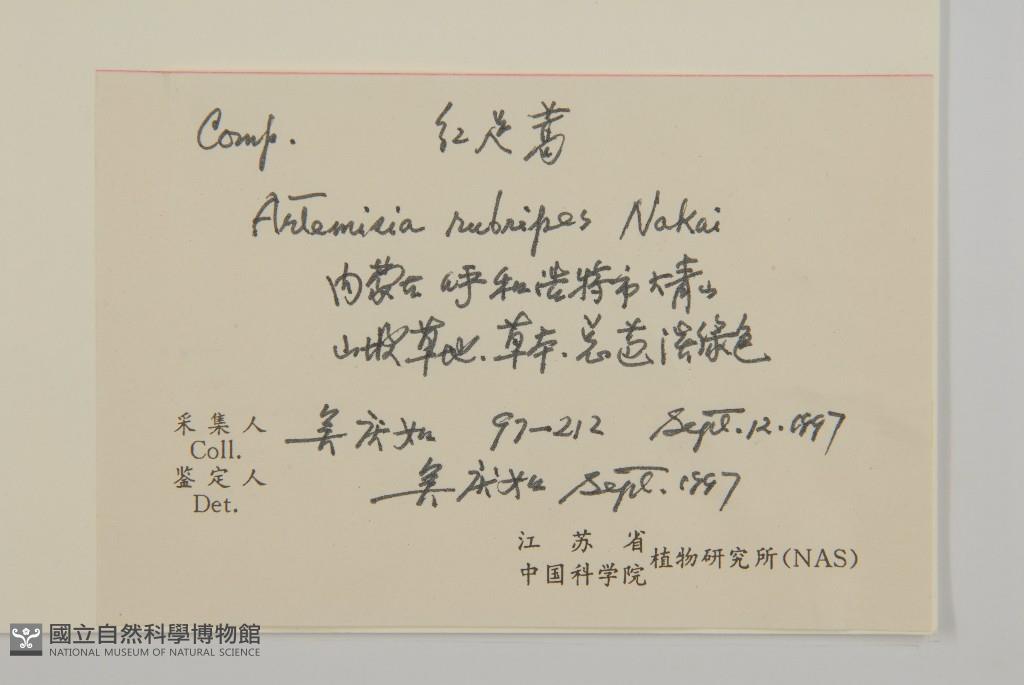 Comp. 红足蒿
Artemisia rubripes Nakai
内蒙古 呼和浩特市大青山
山坡草地、草本、总苞淡绿色
采集人
Coll.
庆如 97-212 Sept. 12. 1997
鉴定人
Det.
庆如 Sept. 1997
江苏省
中国科学院 植物研究所(NAS)
國立自然科學博物館
NATIONAL MUSEUM OF NATURAL SCIENCE